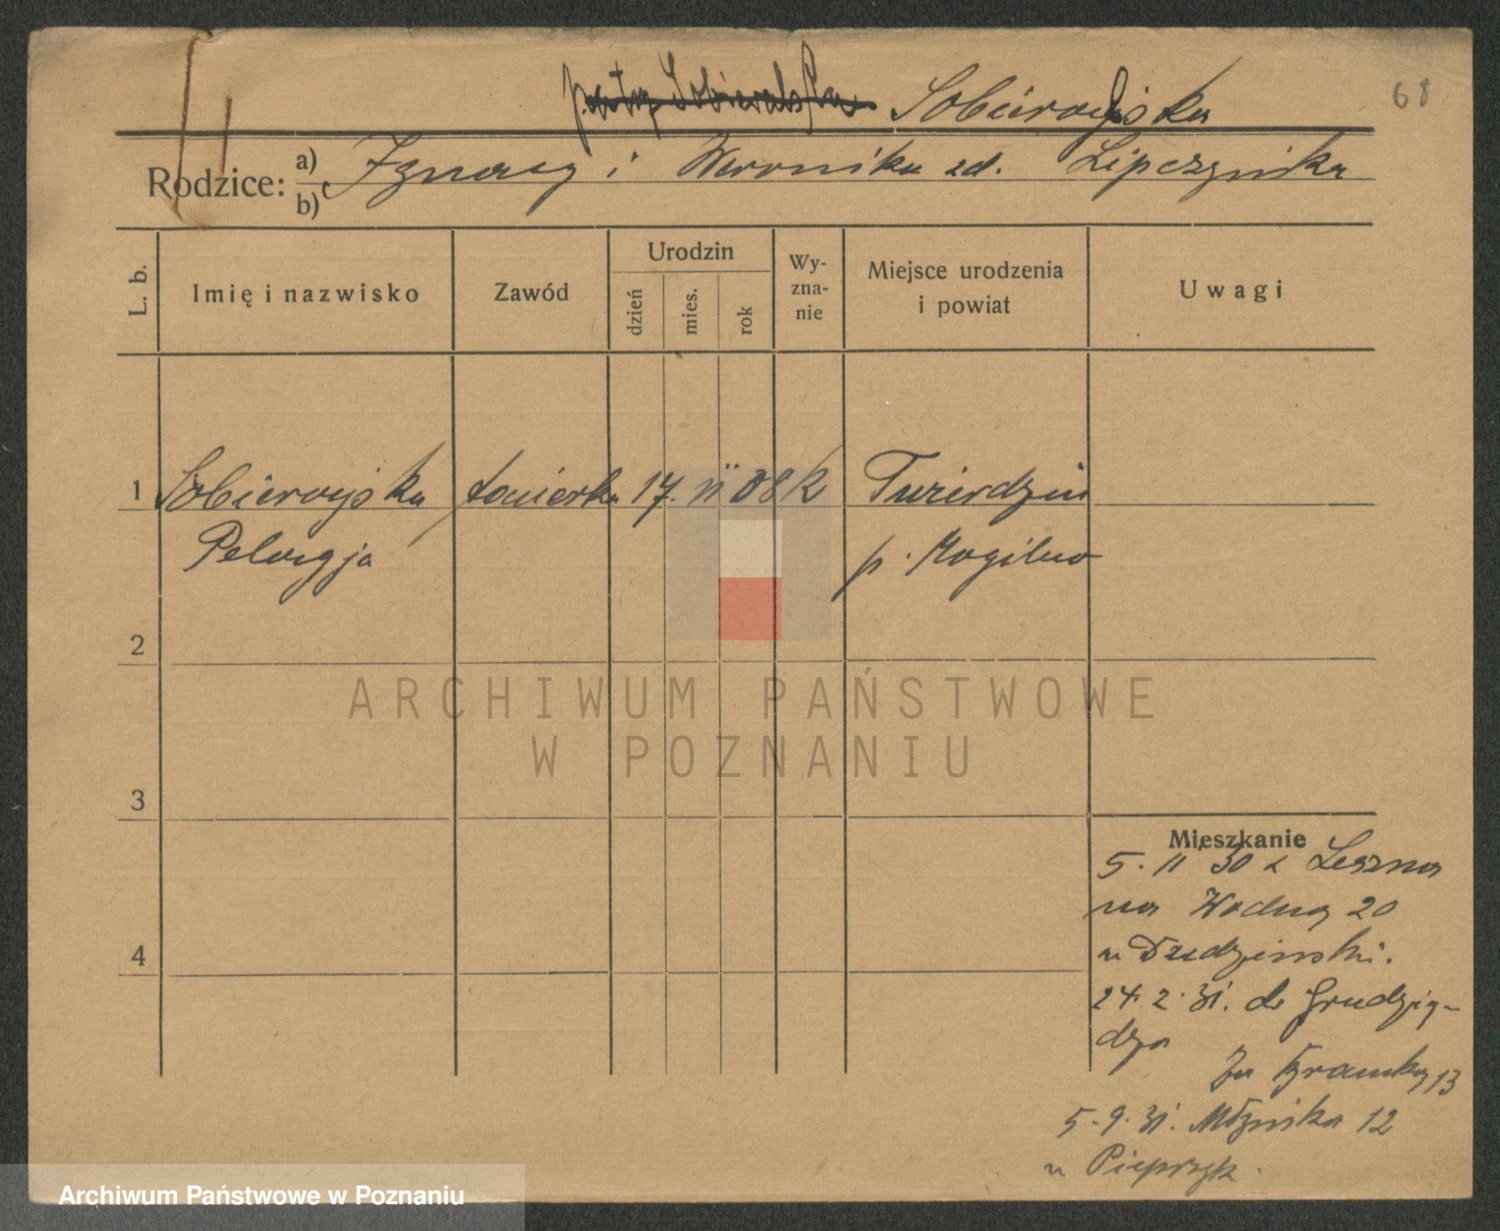 Sobierajska 68
Rodzice: a) Ignacy i Weronika zd. Lipczyńska
b)
L. b. Imię i nazwisko Zawód Urodzin dzień mies. rok Wy-zna-nie Miejsce urodzenia i powiat Uwagi
1 Sobierajska 17. VI 08 k Twierdziń
Pelagja p. Mogilno
2
ARCHIWUM PAŃSTWOWE
W POZNANIU
3
Mieszkanie
5. 11 30 z Leszna
na Wodną 20
u
4
24. 2. 31. do Grudzią-
dza
Za Bramką 13
5. 9. 31. Młyńska 12
u Pieprzyk.
Archiwum Państwowe w Poznaniu